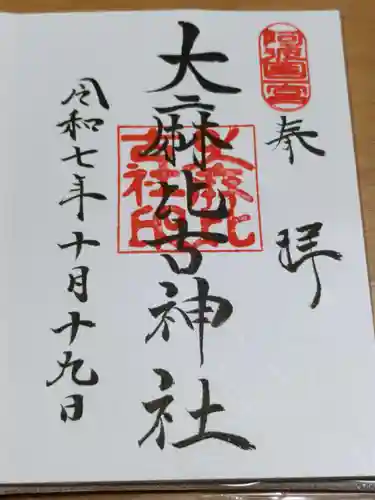 阿波一宮
奉拝
大麻比古神社
大麻比古社印
令和七年十月十九日